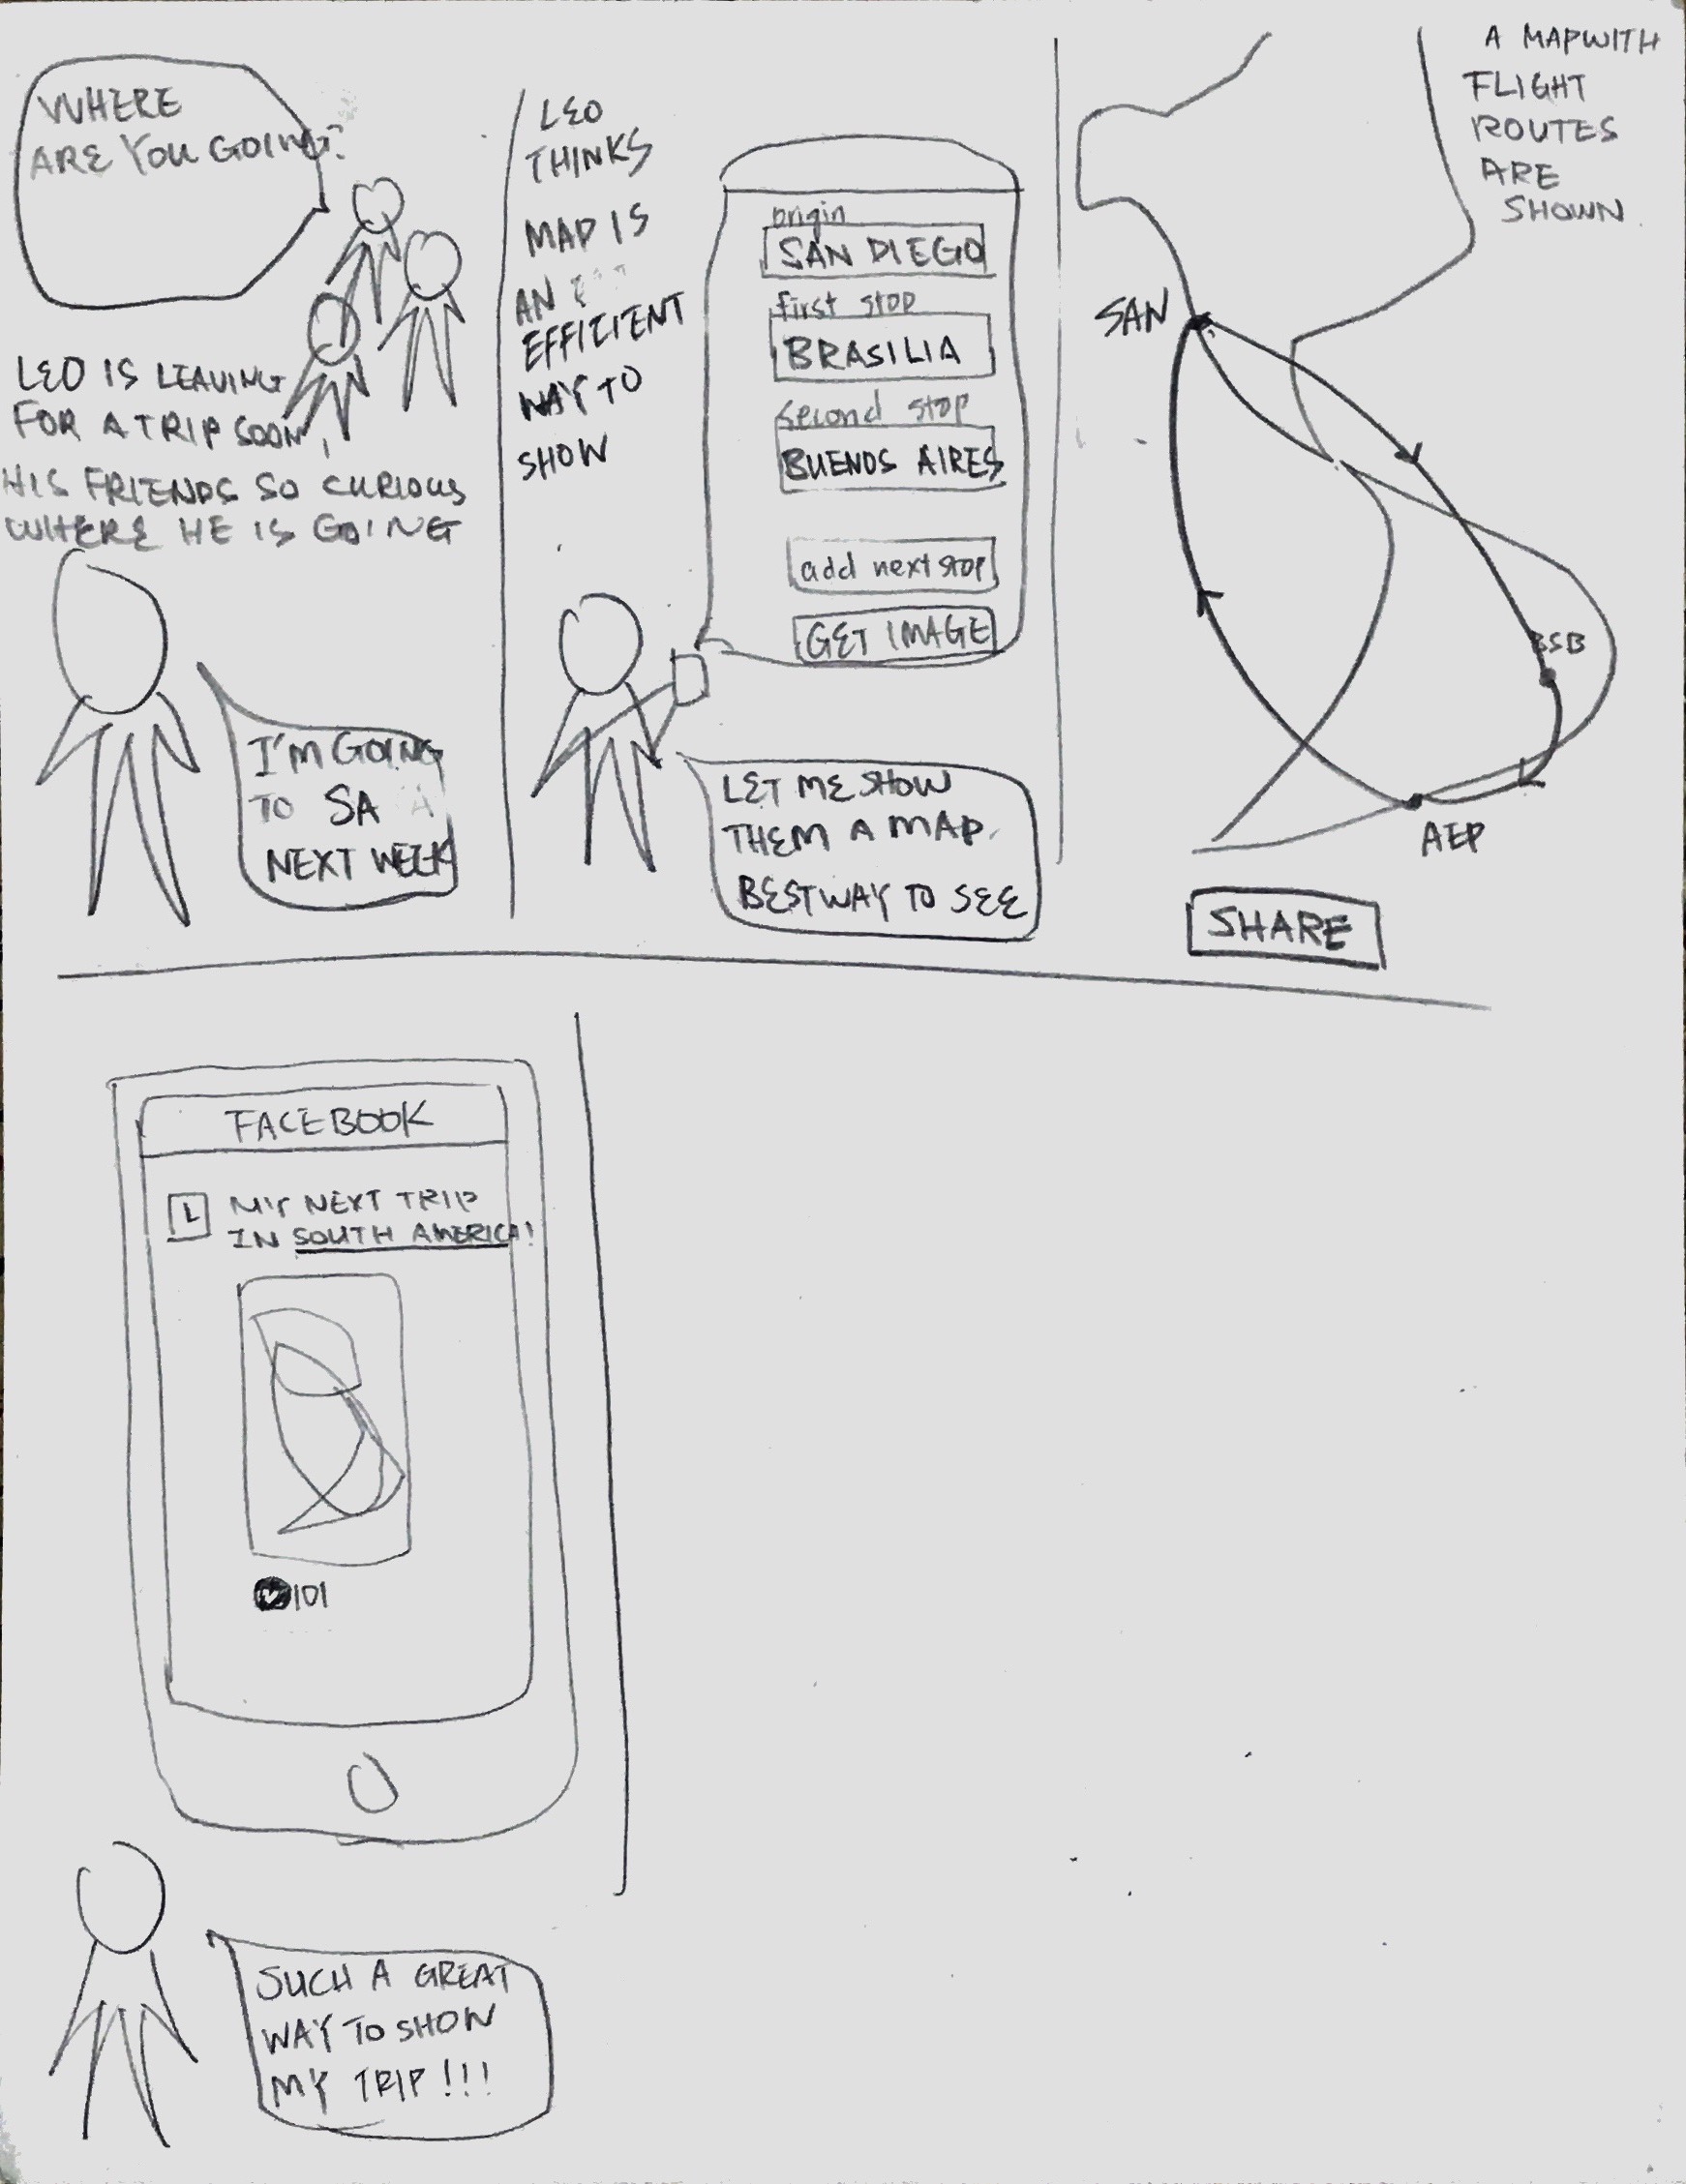 WHERE
ARE YOU GOING?
LEO IS LEAVING
FOR A TRIP SOON,
HIS FRIENDS SO CURIOUS
WHERE HE IS GOING
I'M GOING
TO SA
NEXT WEEK
LEO
THINKS
MAP IS
AN
EFFICIENT
WAY TO
SHOW
origin
SAN DIEGO
first stop
BRASILIA
second stop
BUENOS AIRES
add next stop
GET IMAGE
LET ME SHOW
THEM A MAP.
BEST WAY TO SEE
A MAP WITH
FLIGHT
ROUTES
ARE
SHOWN
SAN
BSB
AEP
SHARE
FACEBOOK
L MY NEXT TRIP
IN SOUTH AMERICA!
101
SUCH A GREAT
WAY TO SHOW
MY TRIP!!!